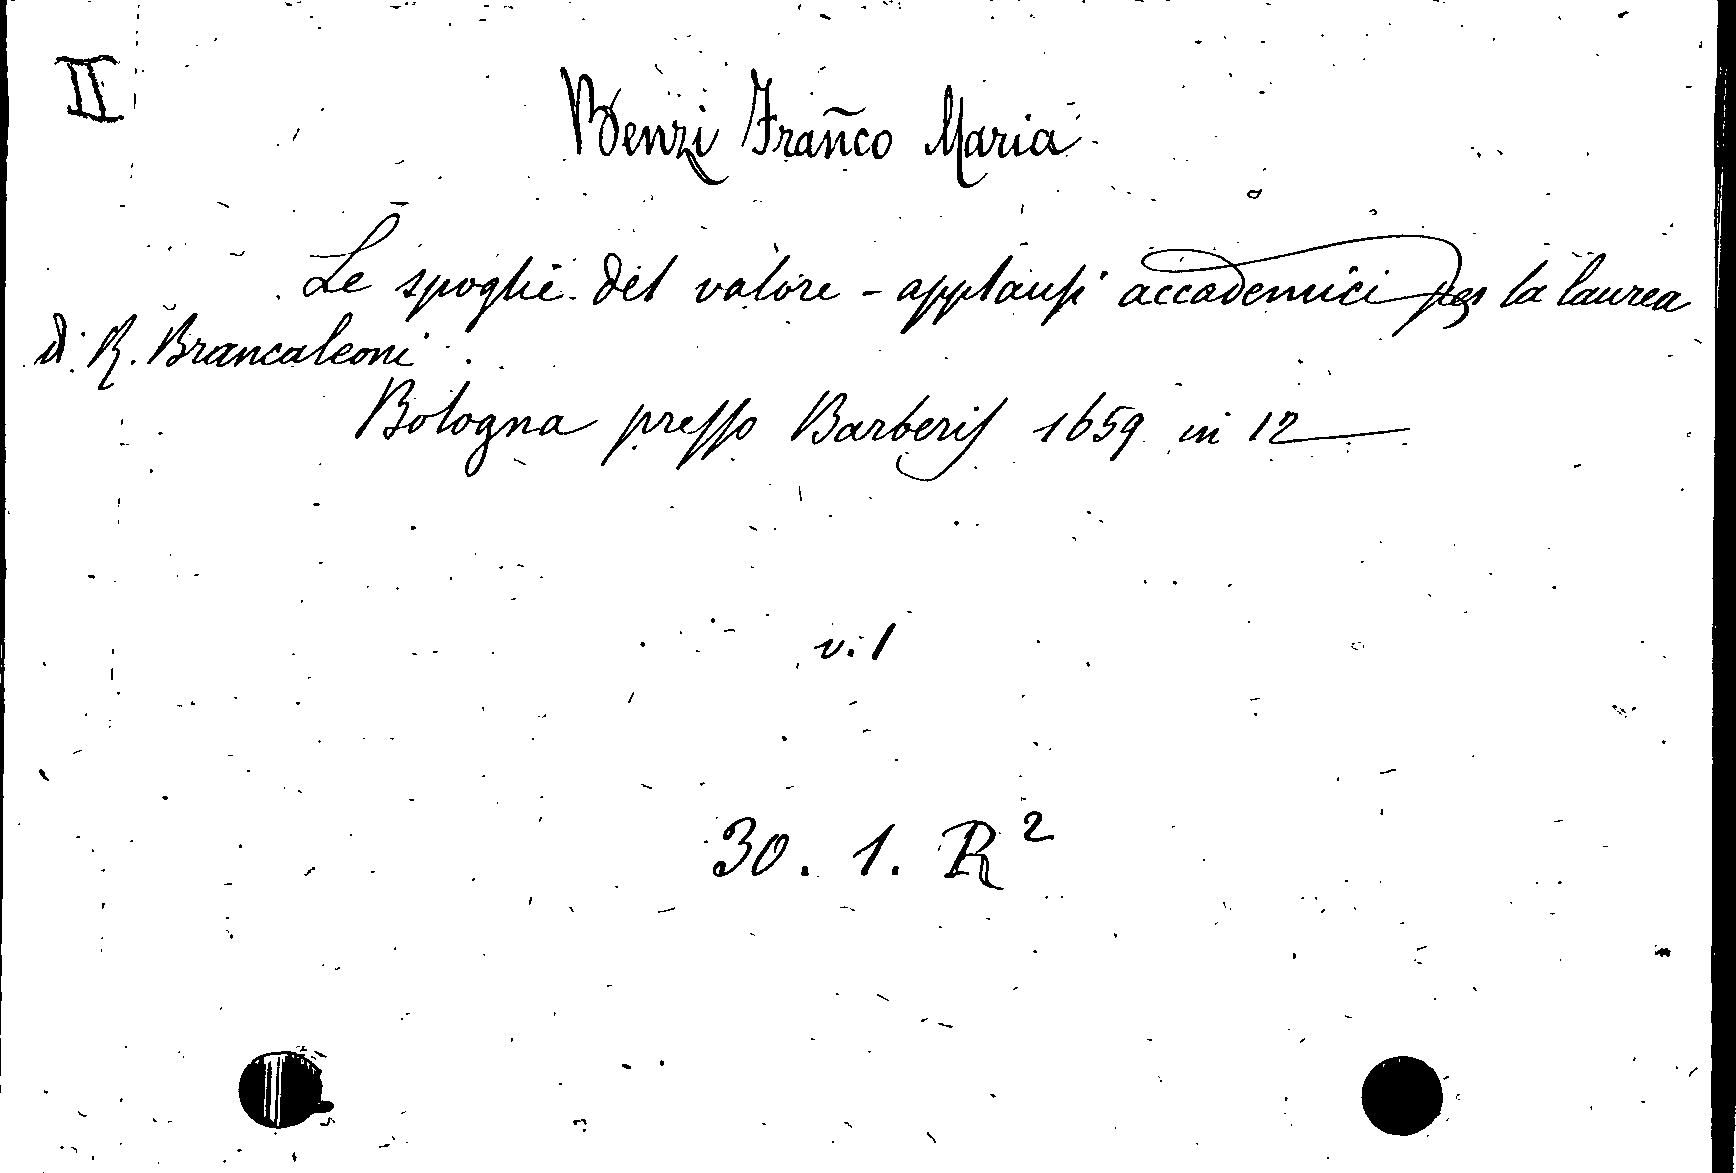 II
Benzi Frañco Maria
Le spoglie del valore - applausi accademici per la laurea
di R. Brancaleoni
Bologna presso Barberis 1659 in 12
v. 1
30. 1. R²